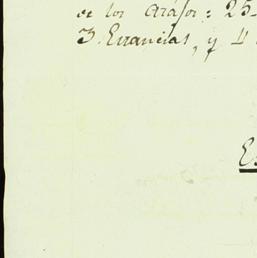 de los Arasor: 25-
3. Errancias, y 4
Es